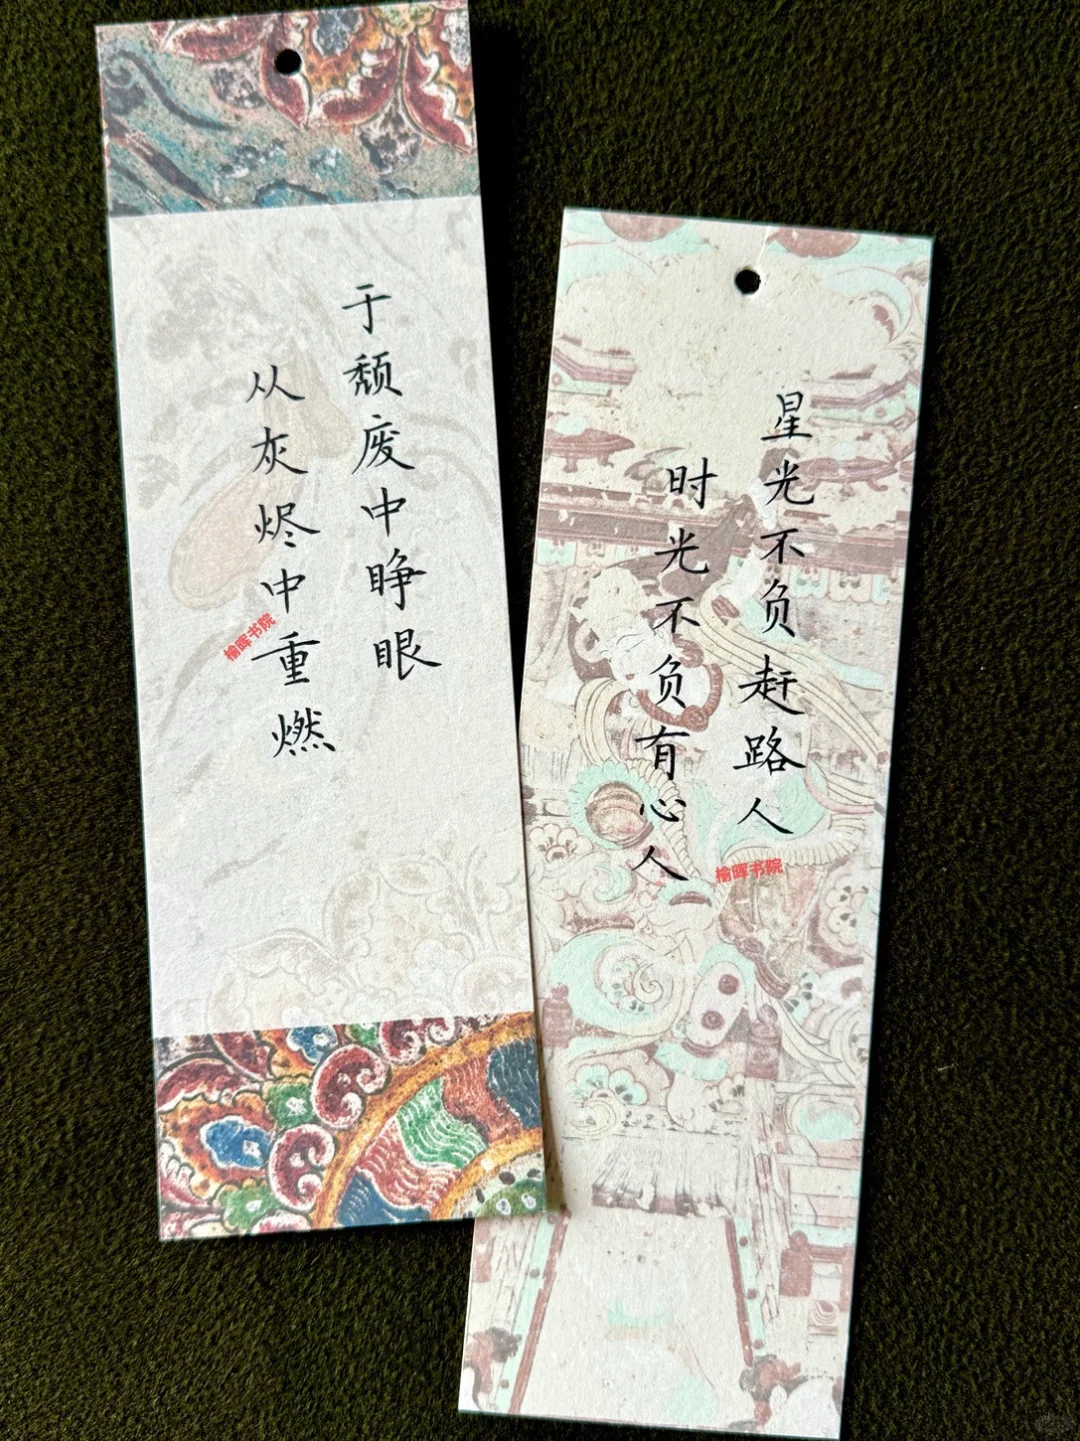 于颓废中睁眼
从灰烬中重燃
榆晖书院
星光不负赶路人
时光不负有心人
榆晖书院